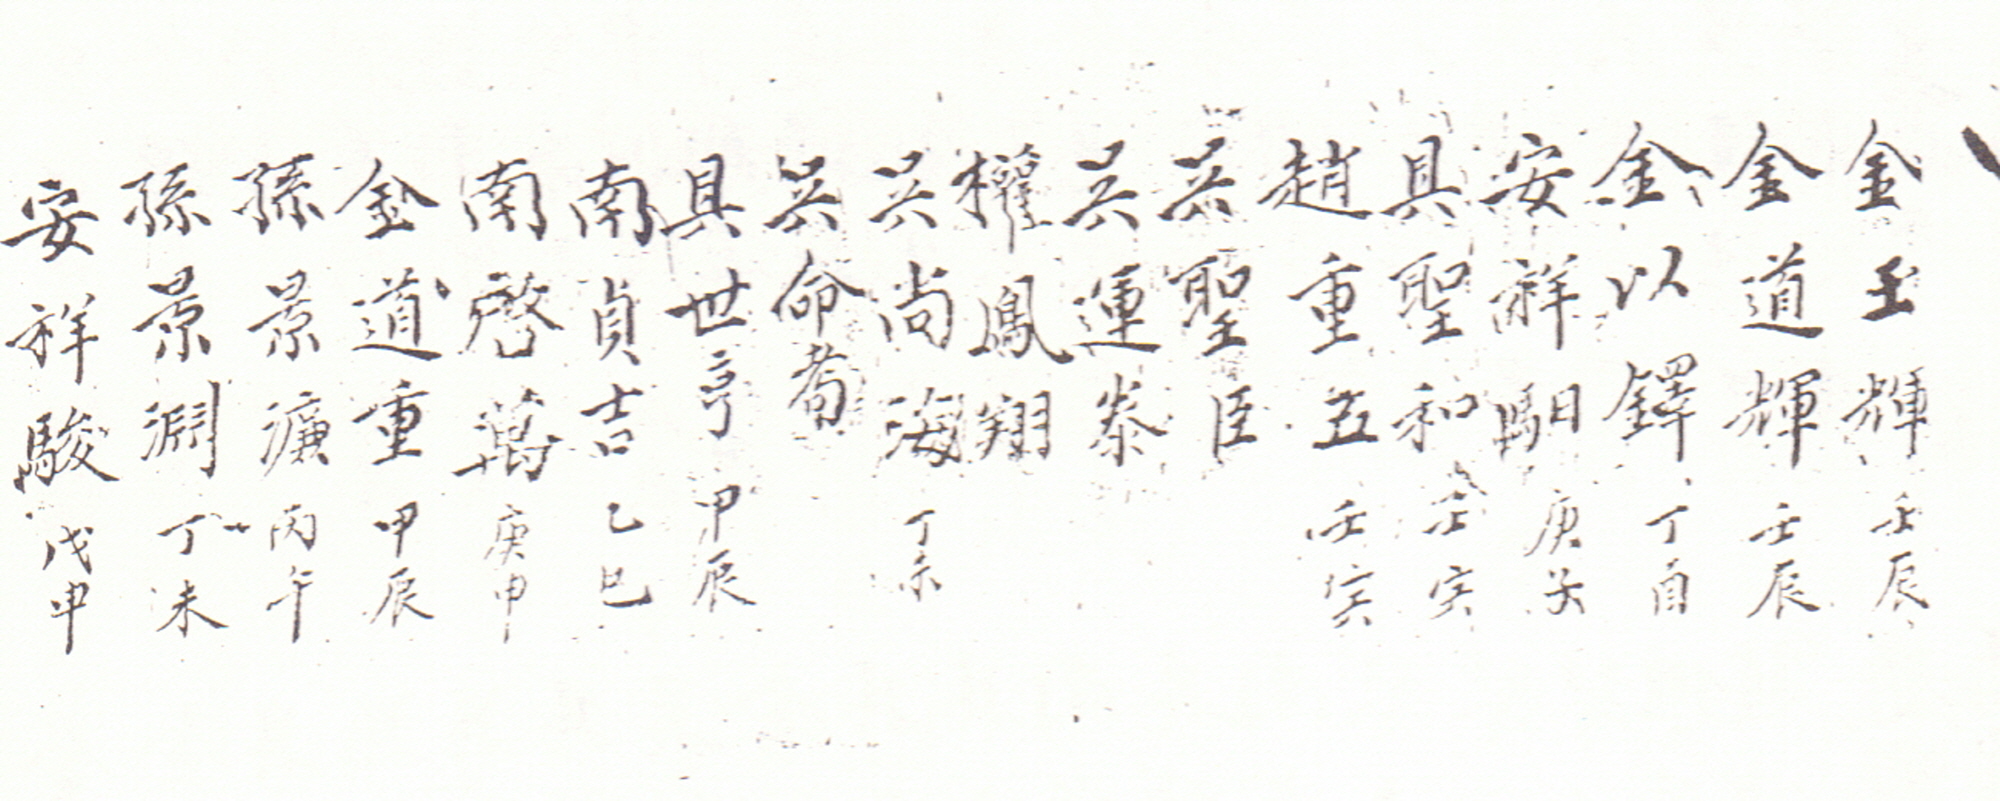 金玉輝 壬辰
金道輝 壬辰
金以鐸 丁酉
安祥馹 庚子
具聖和 壬寅
趙重五 壬寅
吳聖臣
吳運泰
權鳳翔
吳尚海 丁未
吳命耇
具世亨 甲辰
南貞吉 乙巳
南啓萬 庚申
金道重 甲辰
孫景濂 丙午
孫景淵 丁未
安祥駿 戊申